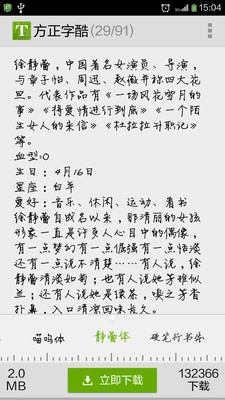 15:04
方正字酷(29/91)
徐静蕾，中国著名女演员、导演，
与章子怡、周迅、赵薇并称四大花
旦。代表作品有《一场风花雪月的
事》《将爱情进行到底》《一个陌
生女人的来信》《杜拉拉升职记》
等。
血型:O
生日：4月16日
星座：白羊
爱好：音乐、休闲、运动、看书
徐静蕾自成名以来，那清丽的女孩
形象一直是许多人心目中的偶像，
有一点梦幻有一点倔强有一点恬淡
还有一点说不清楚……有人说，徐
静蕾清淡如菊；也有人说她芳雅似
兰；还有人说她是绿茶，嗅之芳香
扑鼻，入口清冽回味长久。
喵呜体 静蕾体 硬笔行书体
2.0
MB
立即下载
132366
下载